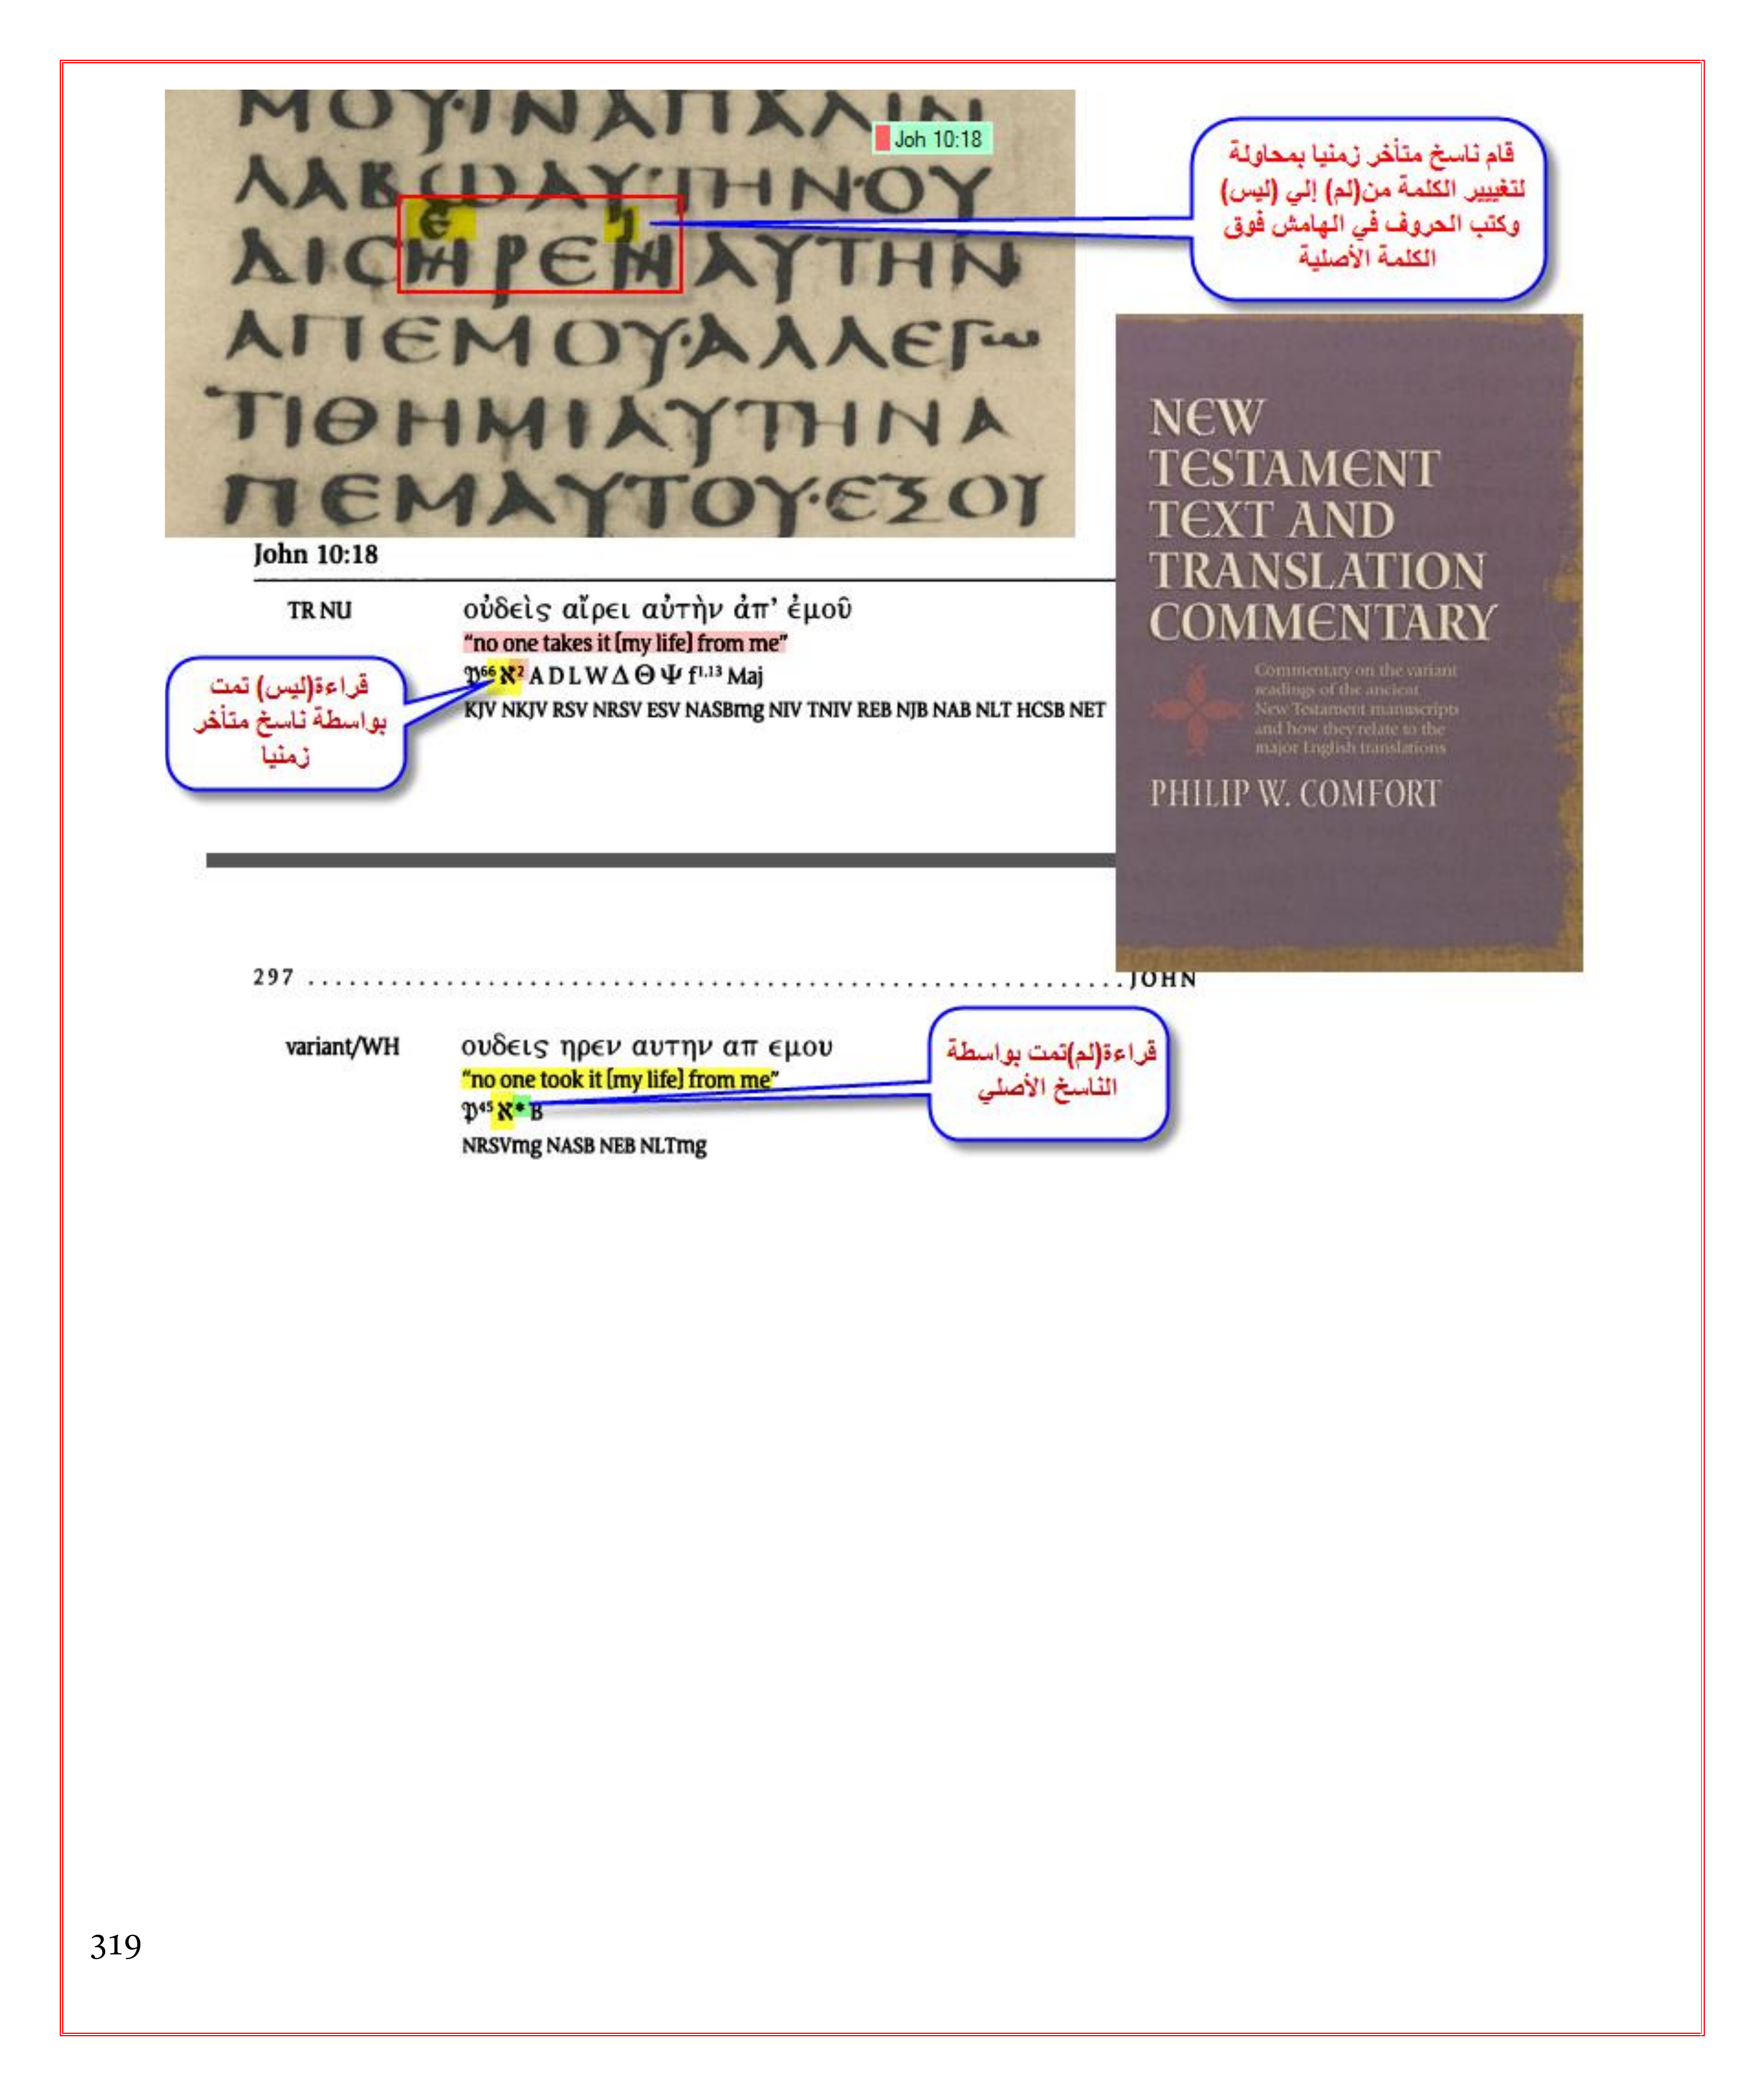 ΜΟΥ·ΙΝΑΠΑΛΙΝ
Joh 10:18
ΛΑΒΩΑΥΤΗΝ·ΟΥ
ΔΙCΗΡΕΝΑΥΤΗΝ
ΑΠΕΜΟΥ·ΑΛΛΕΓω
ΤΙΘΗΜΙΑΥΤΗΝΑ
ΠΕΜΑΥΤΟΥ·ΕΞΟΥ
قام ناسخ متأخر زمنيا بمحاولة
لتغييير الكلمة من(لم) إلي (ليس)
وكتب الحروف في الهامش فوق
الكلمة الأصلية
John 10:18
TR NU
οὐδεὶς αἴρει αὐτὴν ἀπ’ ἐμοῦ
“no one takes it [my life] from me”
𝔓⁶⁶ ℵ² A D L W Δ Θ Ψ f¹,¹³ Maj
KJV NKJV RSV NRSV ESV NASBmg NIV TNIV REB NJB NAB NLT HCSB NET
قراءة(ليس) تمت
بواسطة ناسخ متأخر
زمنيا
NEW
TESTAMENT
TEXT AND
TRANSLATION
COMMENTARY
Commentary on the variant
readings of the ancient
New Testament manuscripts
and how they relate to the
major English translations
PHILIP W. COMFORT
297 . . . . . . . . . . . . . . . . . . . . . . . . . . . . . . . . . . . . . . . . . . . . . . . . . . . . . . . . . . . . JOHN
variant/WH
ουδεις ηρεν αυτην απ εμου
“no one took it [my life] from me”
𝔓⁴⁵ ℵ* B
NRSVmg NASB NEB NLTmg
قراءة(لم)تمت بواسطة
الناسخ الأصلي
319